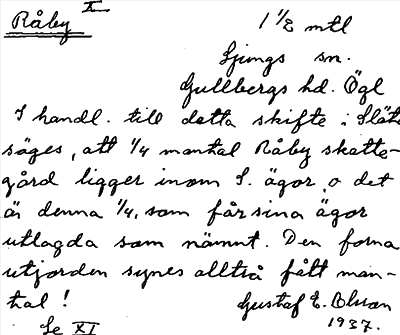 Råby X
1 1/2 mtl
Ljungs sn.
Gullbergs hd. Ögl
I handl. till detta skifte i Slät
säges, att 1/4 mantal Råby skatte-
gård ligger inom S. ägor, o det
är denna 1/4, som får sina ägor
utlagda som nämnt. Den forna
utjorden synes alltså fått man-
tal!
Gustaf E. Olsson
1937.
Se XI